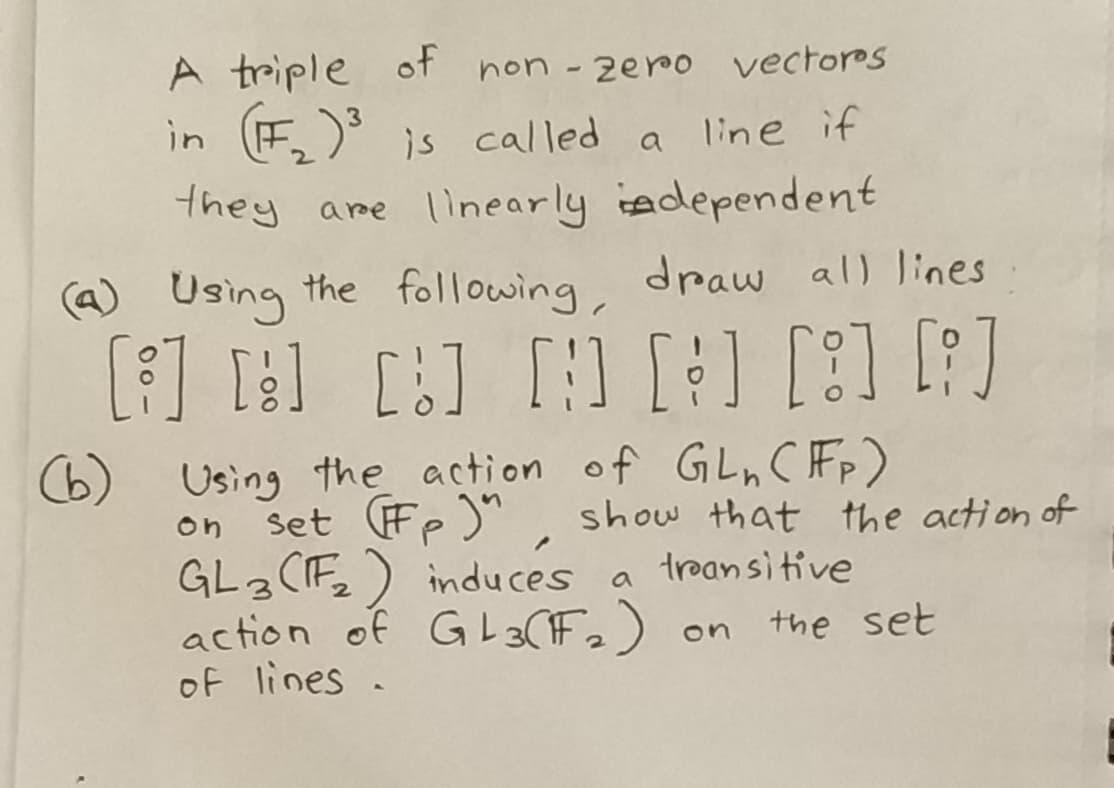 A triple of non-zero vectors
in (𝔽₂)³ is called a line if
they are linearly dependent
(a) Using the following, draw all lines.
[0 0 1] [1 0 0] [1 1 0] [1 1 1] [1 0 1] [0 1 0] [0 1 1]
(b) Using the action of GLₙ(𝔽ₚ)
on set (𝔽ₚ)ⁿ, show that the action of
GL₃(𝔽₂) induces a transitive
action of GL₃(𝔽₂) on the set
of lines.